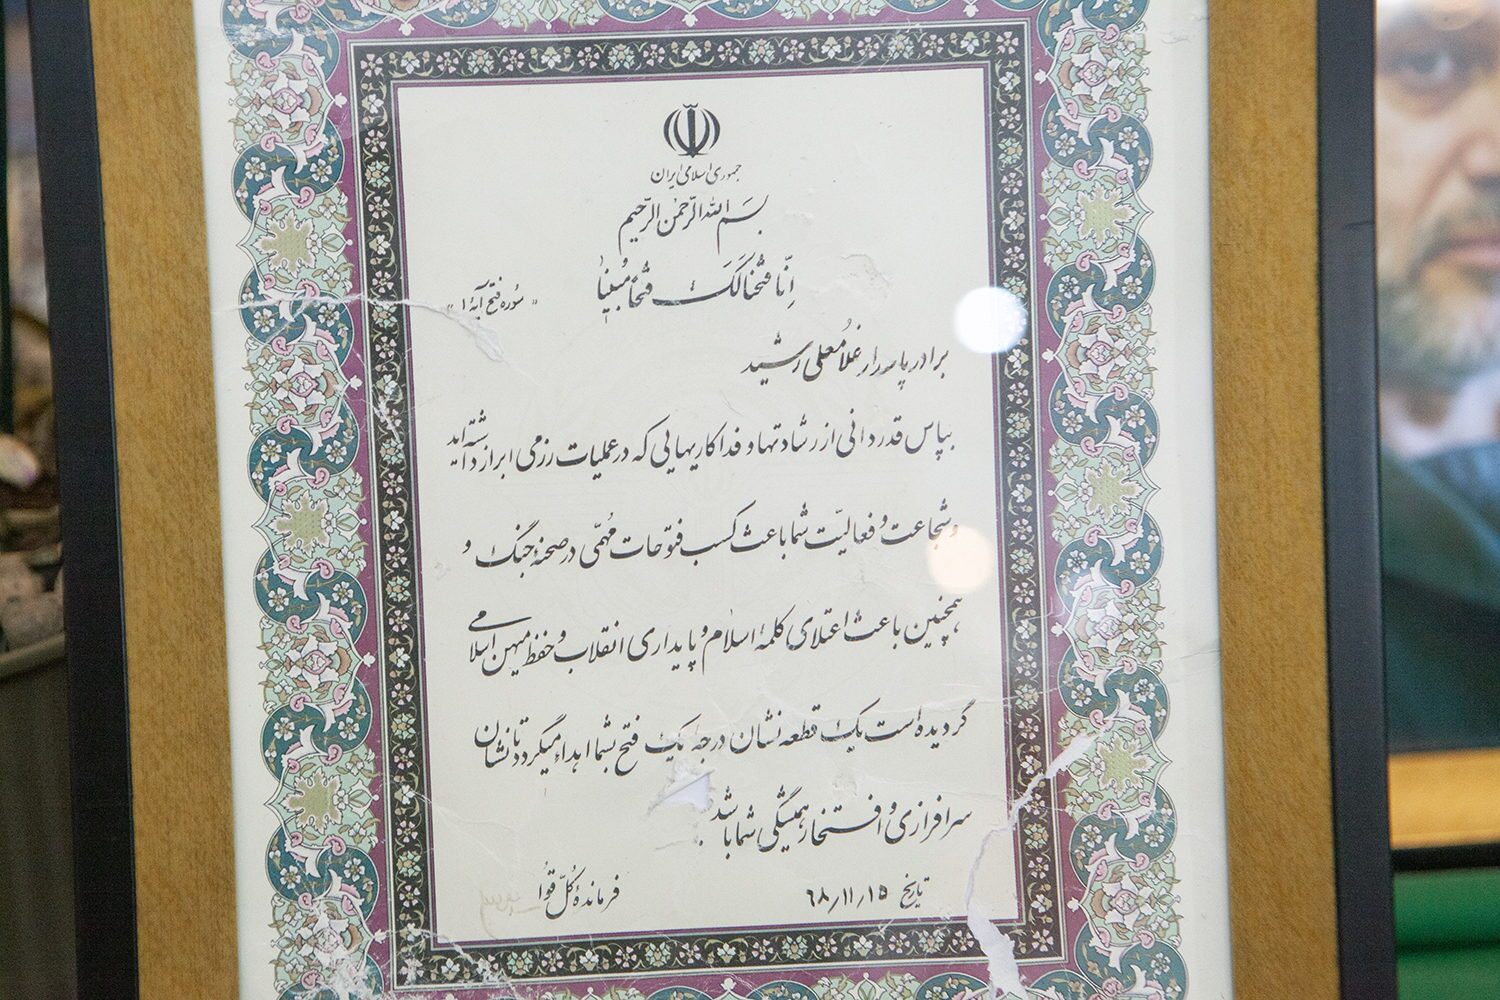 جمهوری اسلامی ایران
بسم الله الرحمن الرحیم
اِنّا فَتَحنا لَکَ فَتحاً مُبیناً " سوره فتح آیهٔ ۱ "
برادر پاسدار غلامعلی رشید
بپاس قدردانی از رشادتها و فداکاریهایی که در عملیات رزمی ابراز داشته‌اید
و شجاعت و فعالیّت شما باعث کسب فتوحات مُهمّی در صحنهٔ جنگ و
همچنین باعث اعتلای کلمهٔ اسلام و پایداری انقلاب و حفظ میهن اسلامی
گردیده است یک قطعه نشان درجه یک فتح بشما اهداء میگردد تا نشان
سرافرازی و افتخار همیشگی شما باشد .
تاریخ ۶۸/۱۱/۱۵ فرماندهٔ کلّ قوا